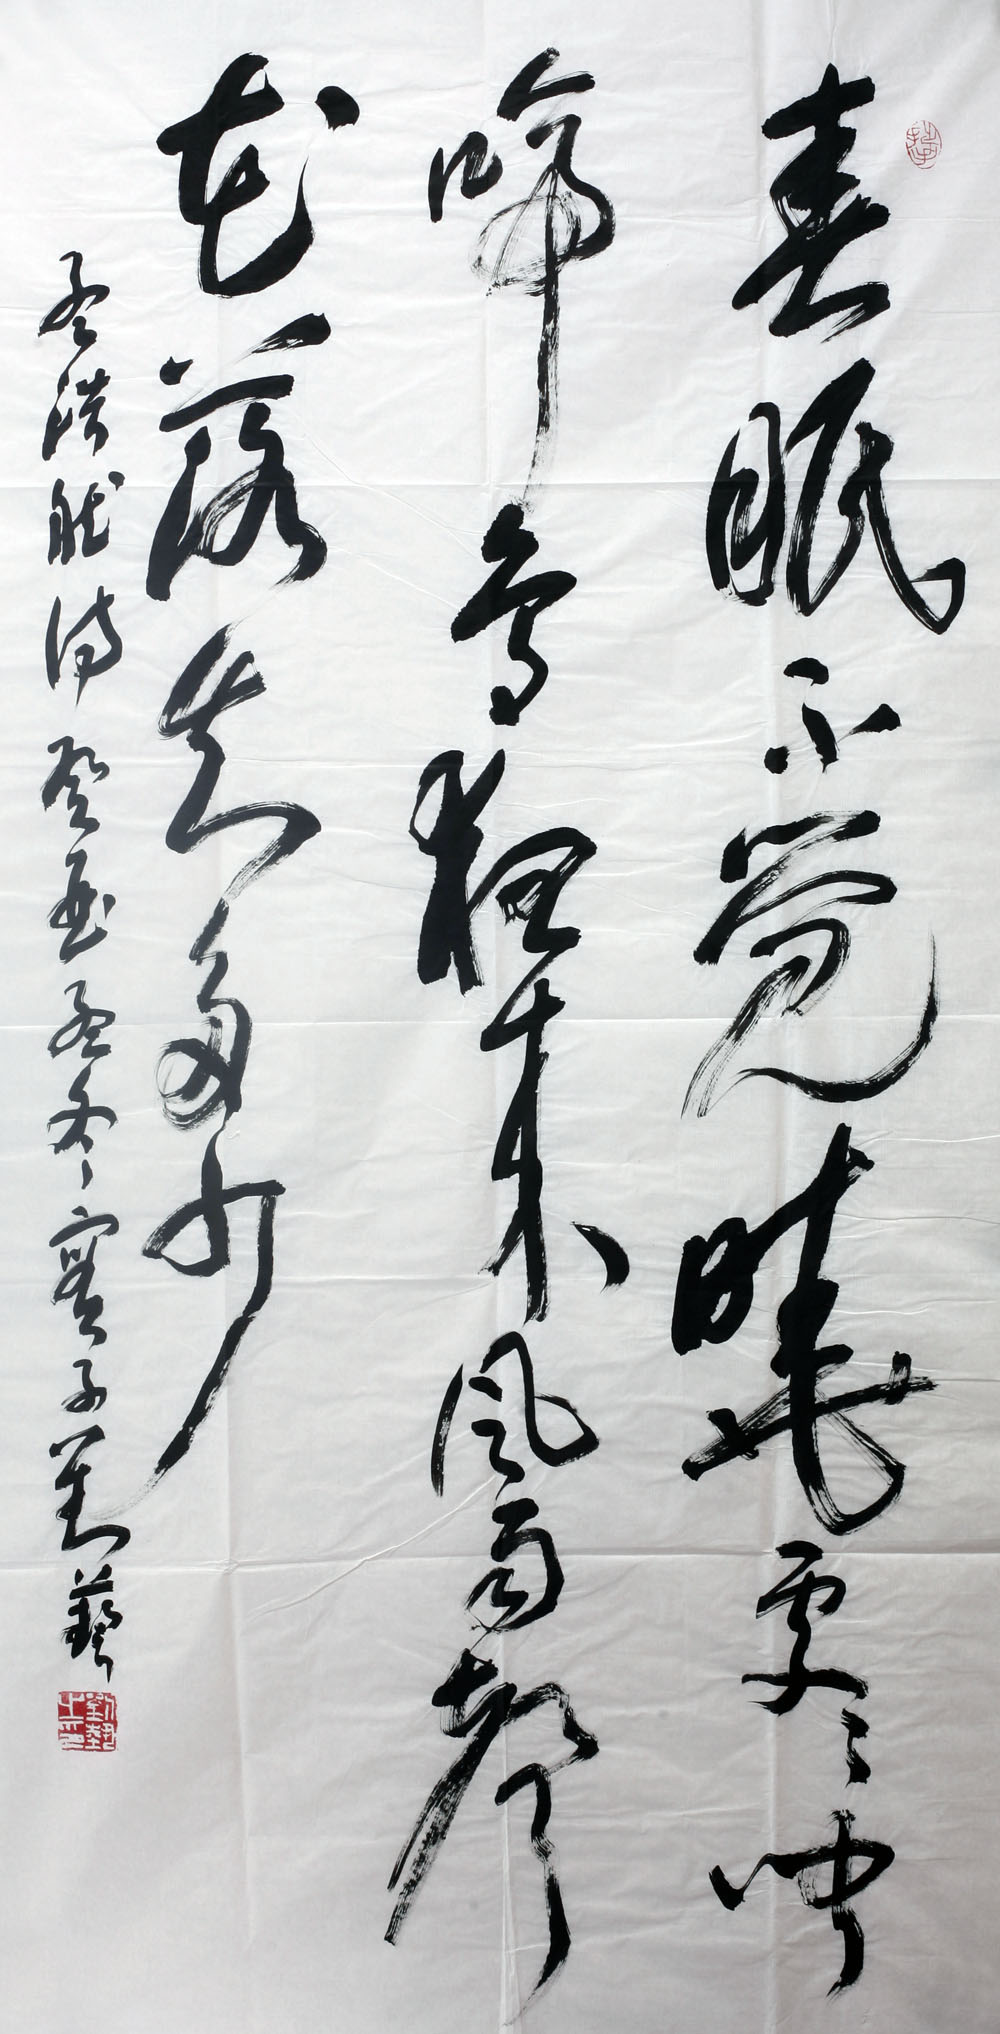 春眠不觉晓处处闻
啼鸟夜来风雨声
花落知多少
孟浩然诗 孟冬 刘藝